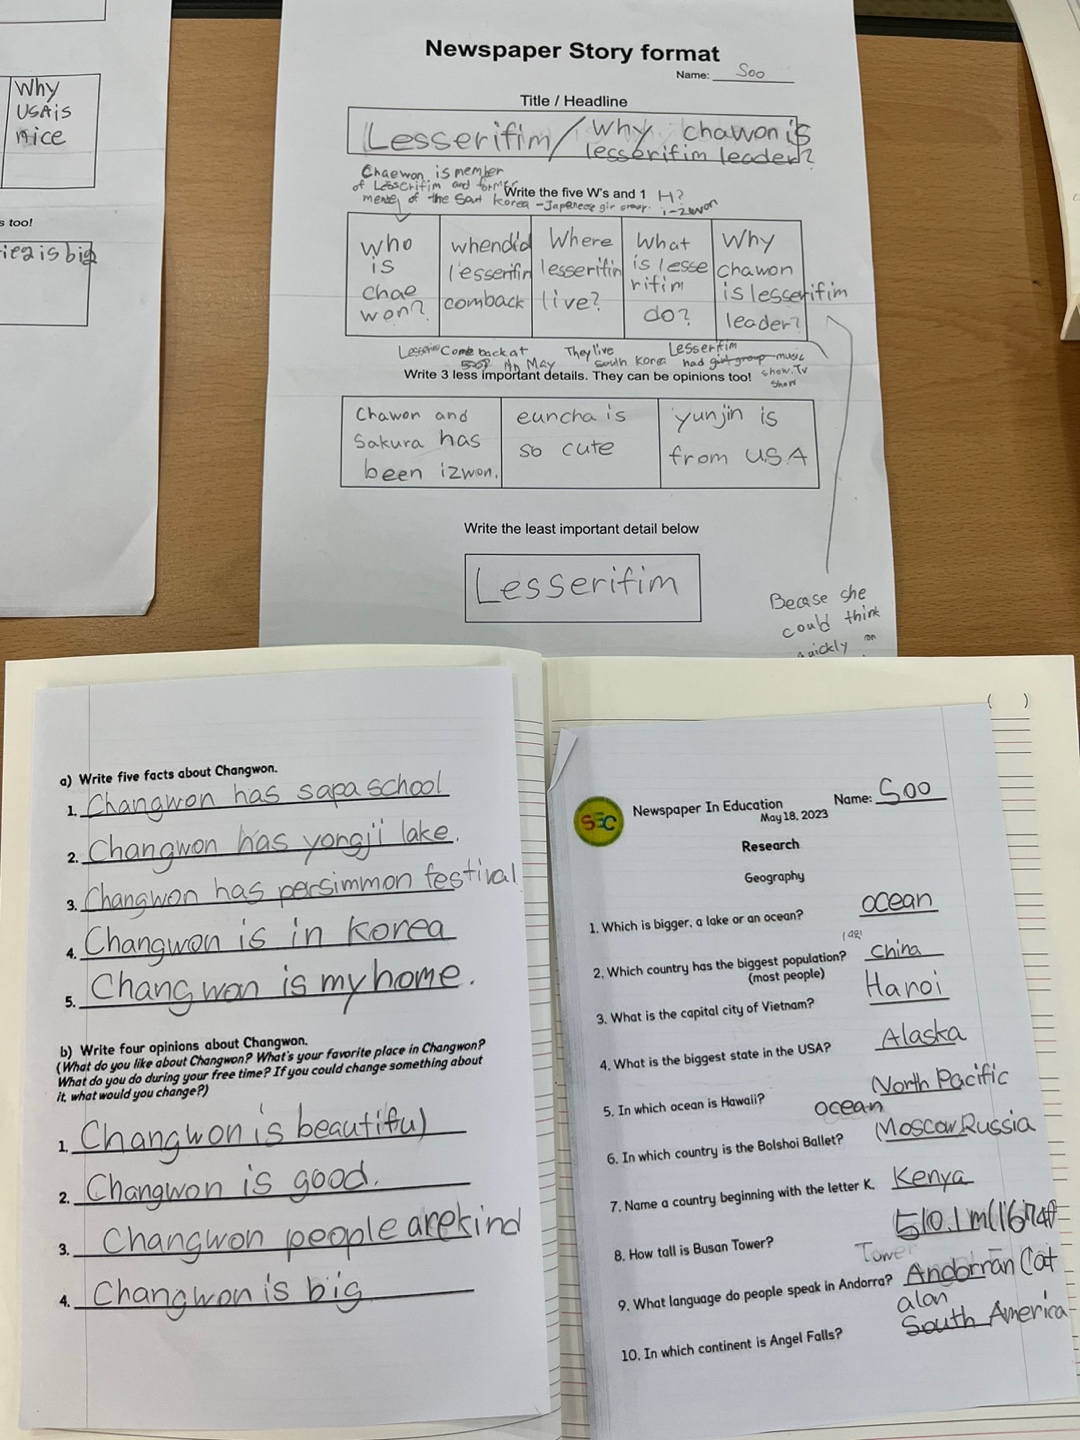 Why
USA is
nice
s too!
is big
Newspaper Story format
Name: Soo
Title / Headline
Lesserifim/ why chawon is
lesserifim leader?
Chaewon is member
of Lesserifim and former
of the Sout Korea -Japanese gir group. i-zwon
Write the five W's and 1 H?
who
is
chae
won?
whendid
l'esserifin
comback
Where
lesserifin
live?
What
is lesse
rifim
do?
Why
chawon
is lesserifim
leader?
Come back at
May
They live
South Korea
Lesserifim
had girl group music
show. Tv
Show
Write 3 less important details. They can be opinions too!
Chawon and
Sakura has
been izwon.
euncha is
so cute
yunjin is
from USA
Write the least important detail below
Lesserifim
Becase she
could think
quickly on
a) Write five facts about Changwon.
1. Changwon has sapa school
2. Changwon has yongji lake.
3. Changwon has persimmon festival
4. Changwon is in Korea
5. Changwon is my home.
b) Write four opinions about Changwon.
(What do you like about Changwon? What's your favorite place in Changwon?
What do you do during your free time? If you could change something about
it, what would you change?)
1. Changwon is beautiful
2. Changwon is good.
3. Changwon people are kind
4. Changwon is big
( )
SEC
Newspaper In Education
May 18, 2023
Name: Soo
Research
Geography
1. Which is bigger, a lake or an ocean? ocean
2. Which country has the biggest population? china
(most people)
3. What is the capital city of Vietnam? Hanoi
4. What is the biggest state in the USA? Alaska
5. In which ocean is Hawaii? North Pacific
ocean
6. In which country is the Bolshoi Ballet? Moscow Russia
7. Name a country beginning with the letter K. Kenya
8. How tall is Busan Tower? 510.1m(1674f
Tower
9. What language do people speak in Andorra? Andorran Cat
alan
10. In which continent is Angel Falls? South America